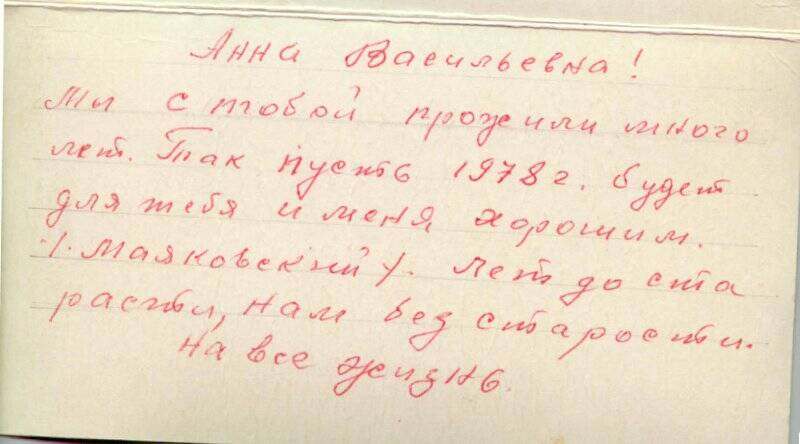 Анна Васильевна!
Мы с тобой прожили много
лет. Так пусть 1978 г. будет
для тебя и меня, хорошим.
/. Маяковский /. лет до ста
расти, нам без старости.
на все жизнь.